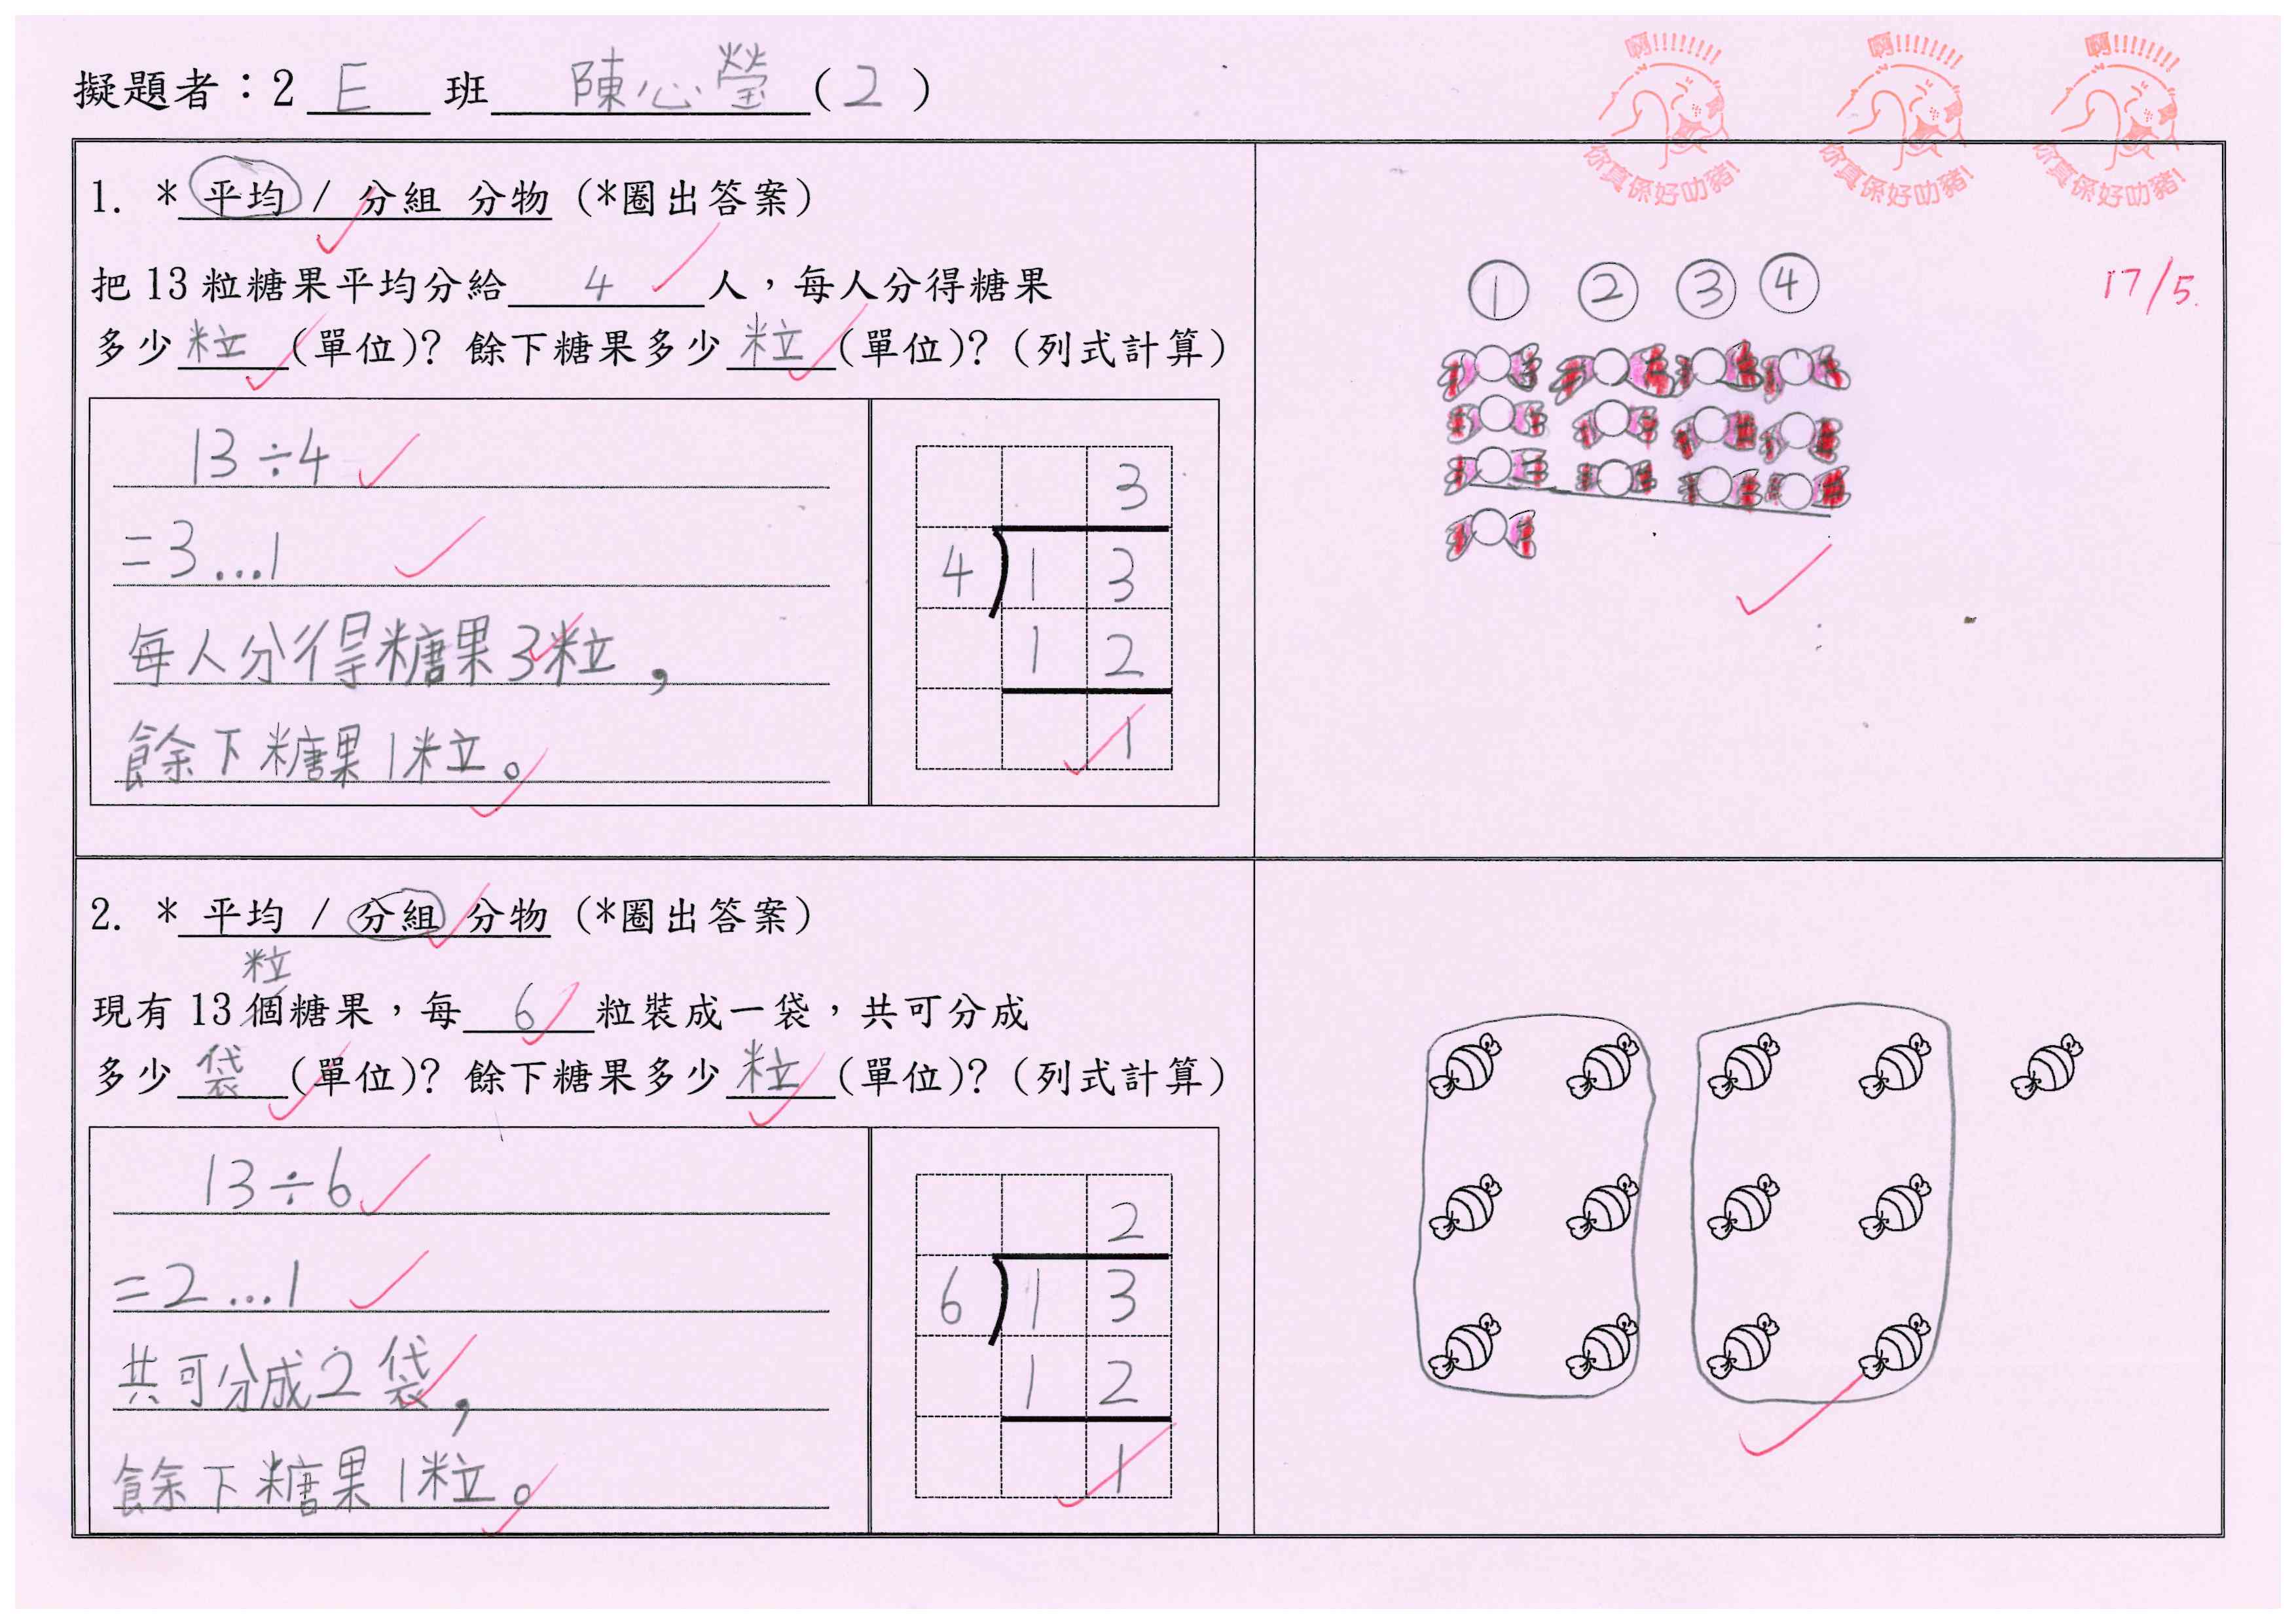 擬題者：2 E 班 陳心瑩 ( 2 )
啊!!!!!!!! 你真係好叻豬!
啊!!!!!!!! 你真係好叻豬!
啊!!!!!!!! 你真係好叻豬!
17/5.
1. * 平均 / 分組 分物 (*圈出答案)
把 13 粒糖果平均分給 4 人，每人分得糖果
多少 粒 (單位)? 餘下糖果多少 粒 (單位)? (列式計算)
13÷4
=3...1
每人分得糖果3粒，
餘下糖果1粒。
3
4 1 3
1 2
1
① ② ③ ④
2. * 平均 / 分組 分物 (*圈出答案)
粒
現有 13 個糖果，每 6 粒裝成一袋，共可分成
多少 袋 (單位)? 餘下糖果多少 粒 (單位)? (列式計算)
13÷6
=2...1
共可分成2袋，
餘下糖果1粒。
2
6 1 3
1 2
1